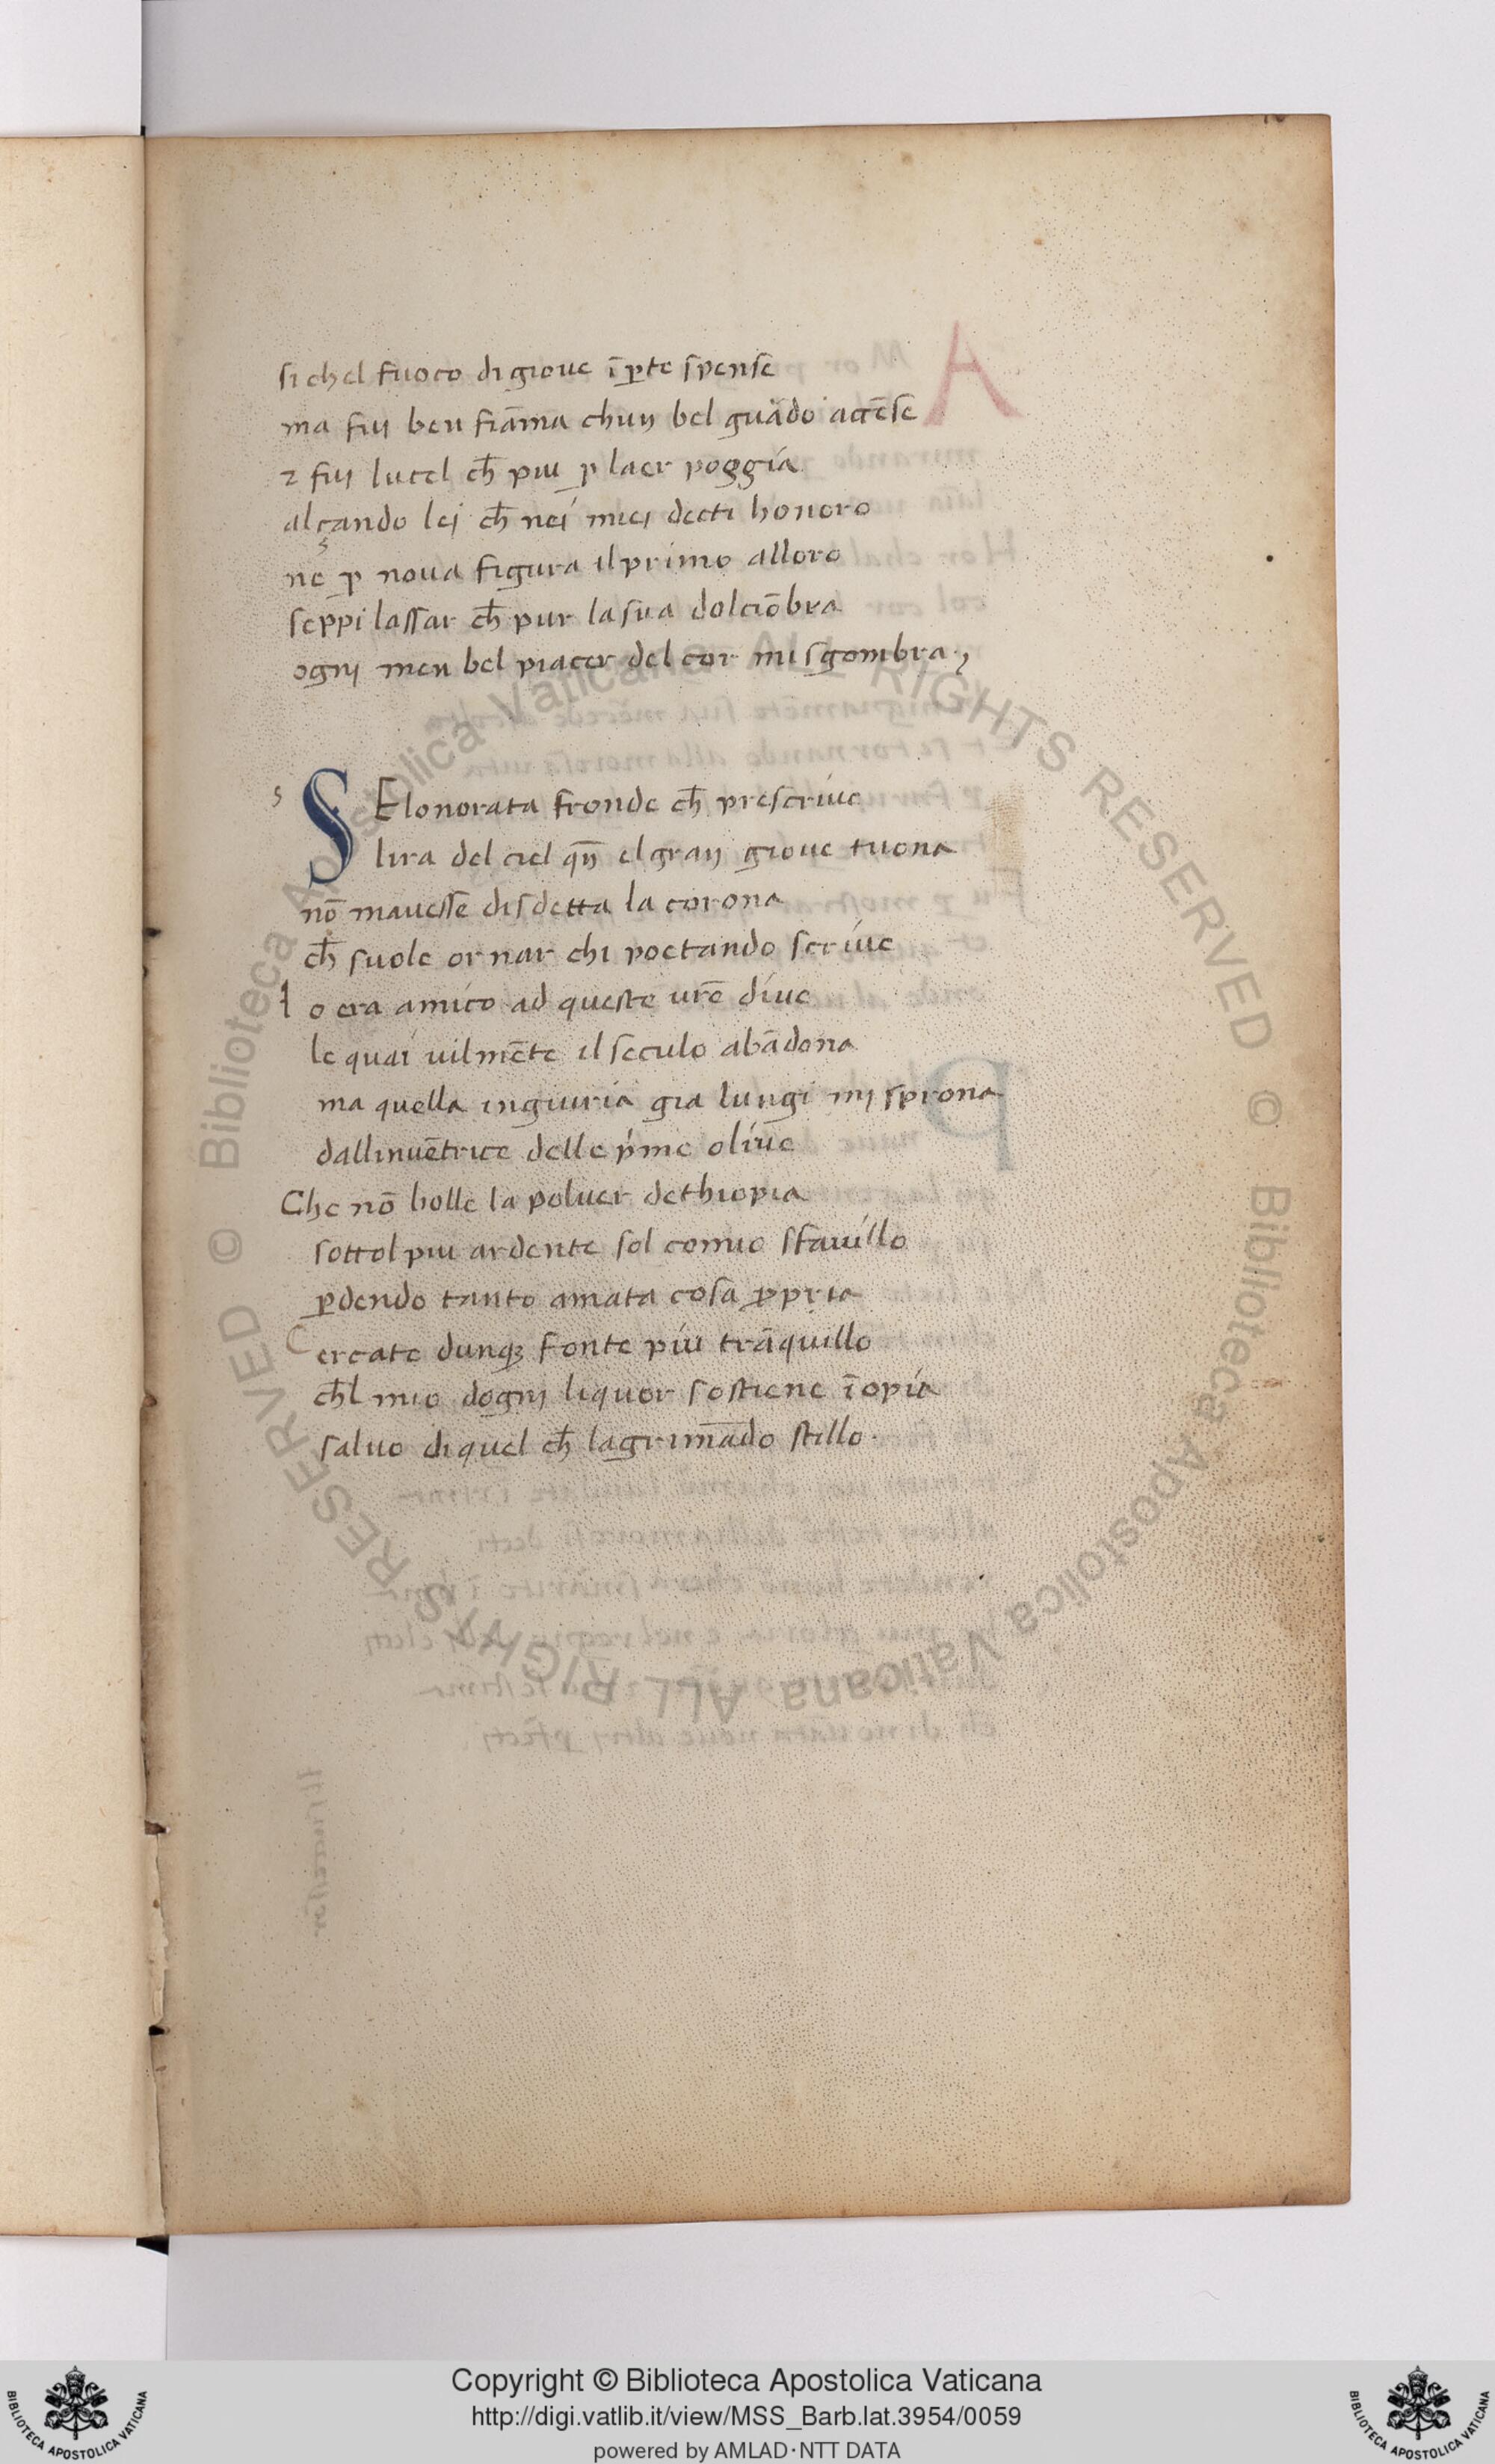 si chel fuoco di gioue ī ꝑte spense
ma fuj ben fiāma chun bel guādo accēse
⁊ fuj lucel ch̄ piu ꝑ laer poggia
alçando lej ch̄ nei miei decti honoro
ne ꝑ noua figura il primo alloro
seppi lassar ch̄ pur la sua dolciōbra
ognj men bel piacer del cor mi sgombra.,
s
SE lonorata fronde ch̄ prescriue
lira del ciel qn̄ el gran gioue tuona
nō mauesse disdetta la corona
ch̄ suole ornar chi poetando scriue
I o era amico ad queste ur̄e diue
le quai uilmēte il seculo abādona
ma quella ingiuria gia lungi mj sprona
dallinuētrice delle pͥme oliue
Che nō bolle la poluer dethiopia
sottol piu ardente sol comio sfauillo
ꝑdendo tanto amata cosa ꝓpria
C ercate dunqꝫ fonte piu trāquillo
ch̄l mio dognj liquor sostiene īopia
saluo di quel ch̄ lagrimādo stillo.
© Biblioteca Apostolica Vaticana ALL RIGHTS RESERVED © Biblioteca Apostolica Vaticana ALL RIGHTS RESERVED
Copyright © Biblioteca Apostolica Vaticana
http://digi.vatlib.it/view/MSS_Barb.lat.3954/0059
powered by AMLAD·NTT DATA
BIBLIOTECA APOSTOLICA VATICANA
BIBLIOTECA APOSTOLICA VATICANA